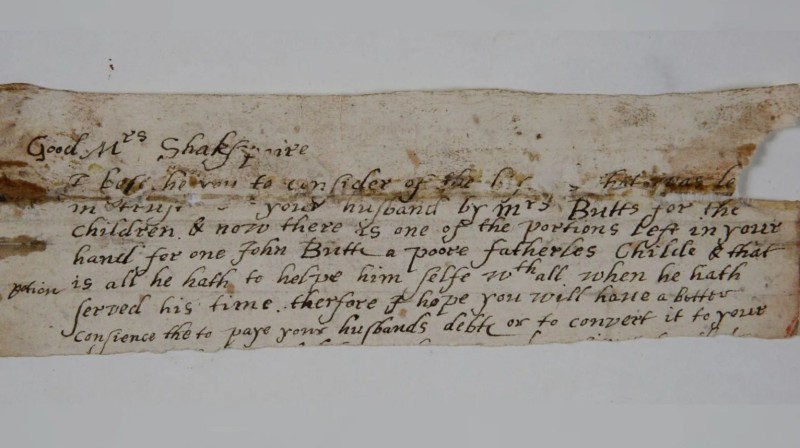 Good Mrs Shakspaire
I bese he you to consider of the that was le
in trust your husband by Mrs Butts for the
children & now there is one of the portions left in your
hand for one John Butte a poore fatherles Childe & that
potion is all he hath to helpe him selfe wth all when he hath
served his time therfore I hope you will have a better
consience the to paye your husbands debte or to convert it to your